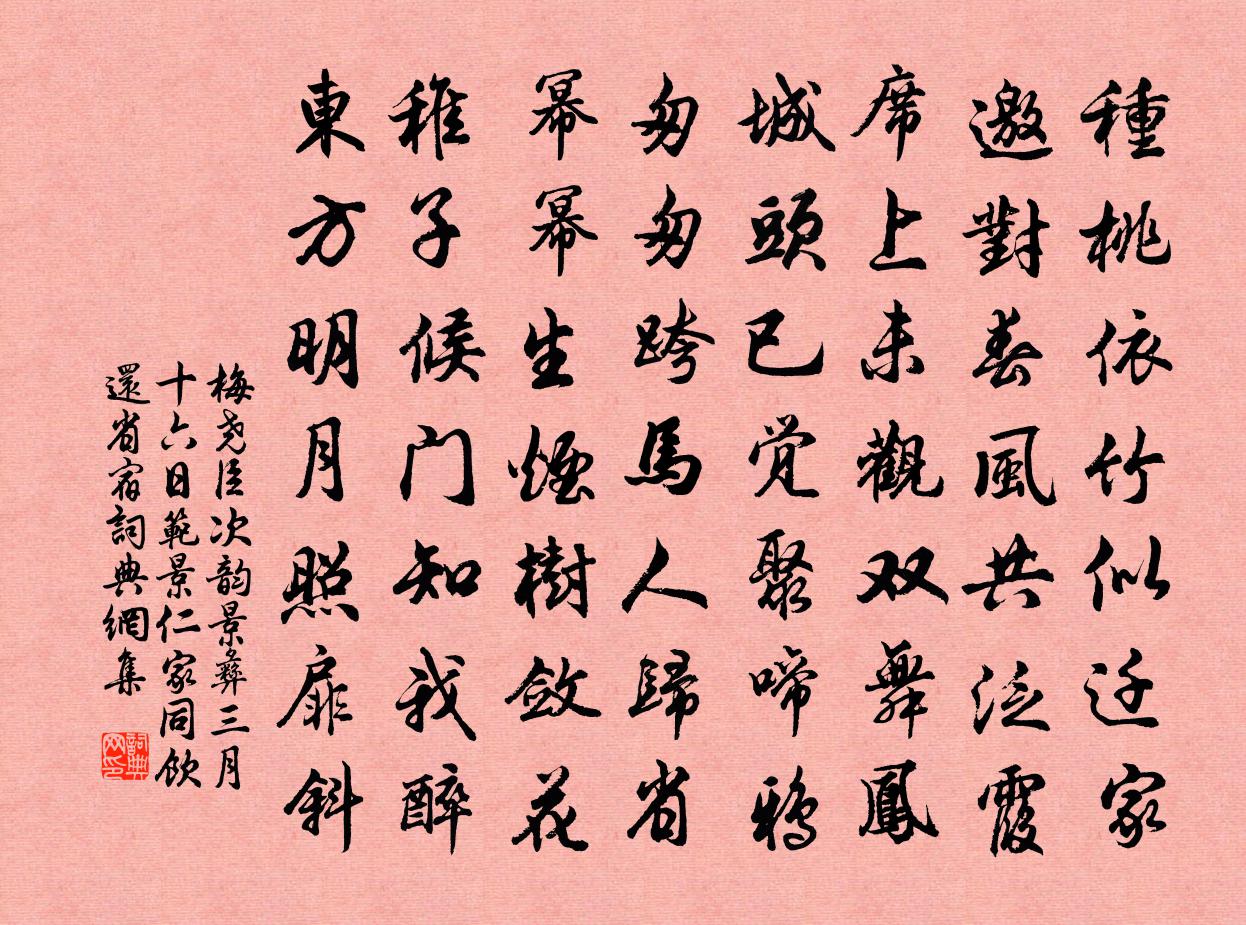 種桃依竹似迁家
邀對春風共泛霞
席上未觀双舞鳳
城頭已觉聚啼鸦
匆匆跨馬人歸省
幂幂生煙樹斂花
稚子候门知我醉
東方明月照扉斜
梅尧臣次韵景彝三月
十六日範景仁家同飲
還省宿詞典網集
詞典网印